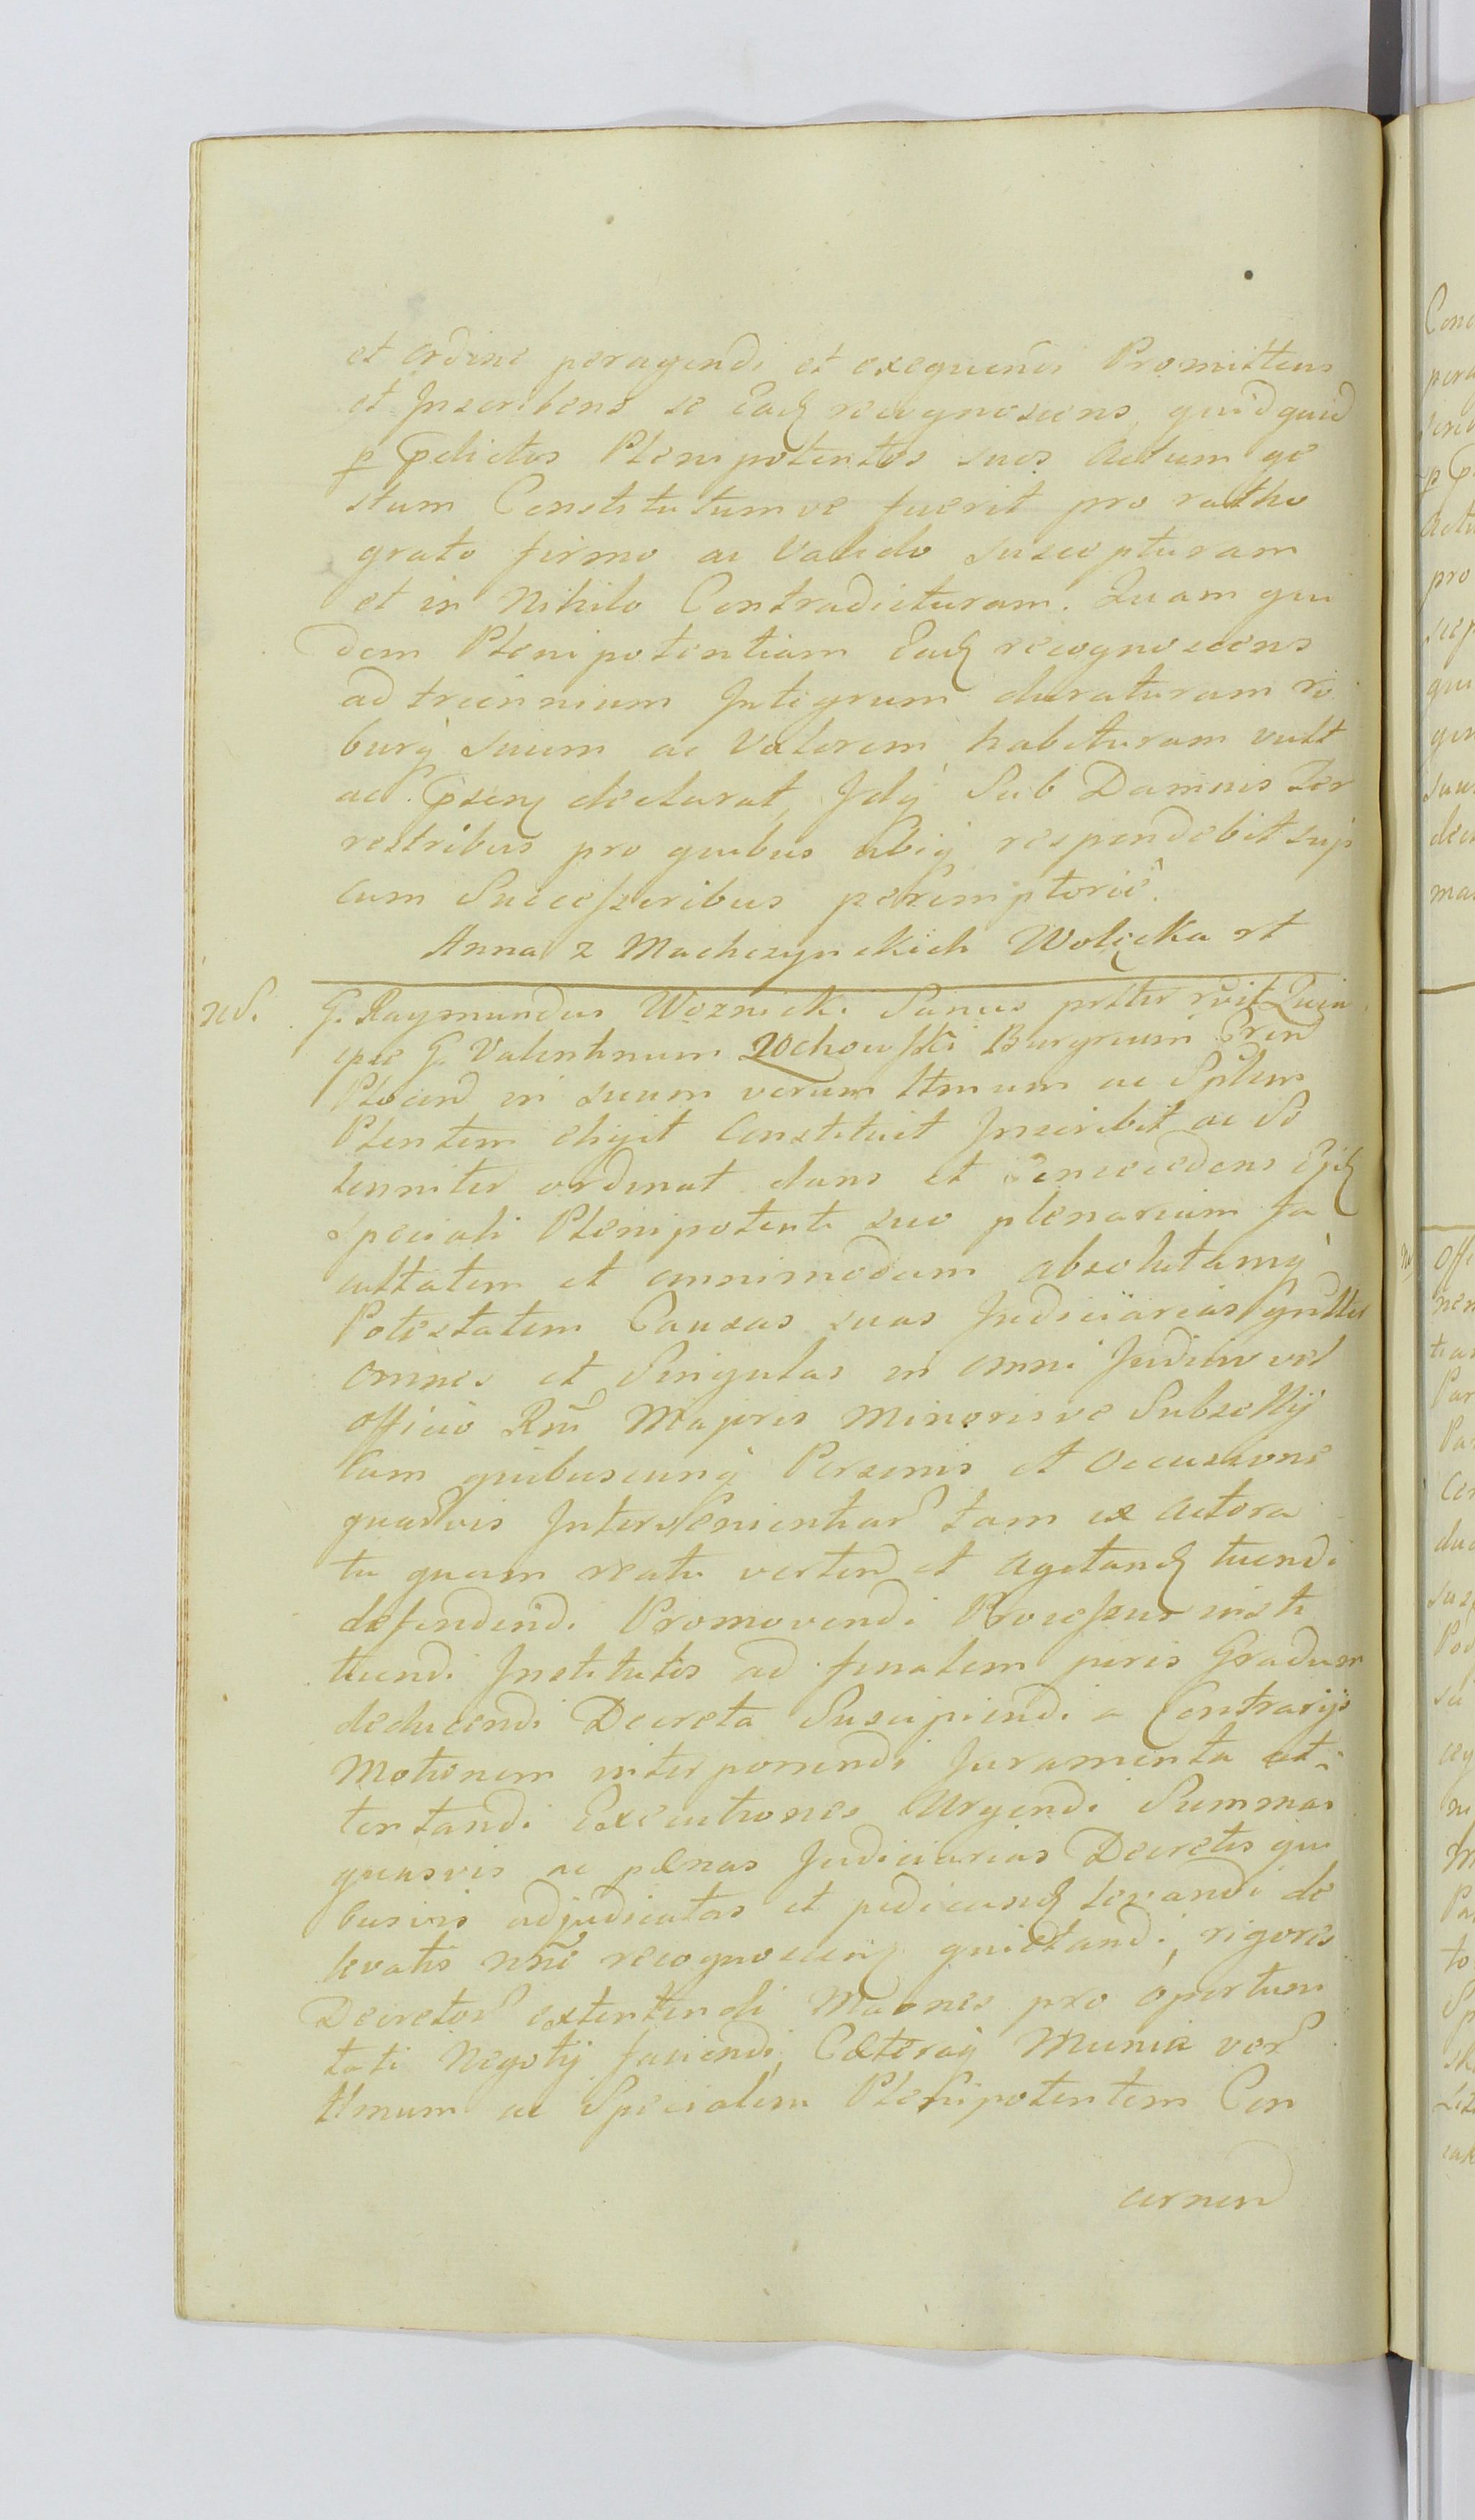 et ordine peragendi et exequendi Promittens
et Inscribens se Eadq recognoscens, quidquid
p pdictos Plenipotentes suos actum ge
stum Constitutumve fuerit pro ratho
grato firmo ac Valido suscepturam
et in Nihilo Contradicturam. Quam qui
dem Plenipotentiam Eadq recognoscens
ad triennium Integrum duraturam ro
burq suum ac Valorem habituram vult
ac declarat, Idq Sub Damnis Ter
restribus pro quibus ubiq respondebit
cum Successoribus peremptorie.
Anna z Machczynskich Wolicka st
nS. G. Raymundus Woznicki Sanus
G. Valentinum Zochowski Burgrium
in suum verum ltmum ac Splem
Plentem eligit Constituit Inscribit ac So
lenniter ordinat dans et Conceedens
Speciali Plenipotenti suo plenariam fa
cultatem et omnimodam absolutamq
Potestatem Causas suas Judiciarias gnlter
omnes et Singulas in omni Judicio vel
officio Rni Majoris Minorisve Subsellij
Cum quibuscunq Personis et Occasione
quavis Intervenientibus tam ex actora
tu quam reatu verten et agitand tuendi
defendendi Promovendi Processus insti
tuendi Institutis ad finalem juris Gradum
deducendi Decreta Suscipiendi a Contrarijs
Motionem interponendi Juramenta at
tentandi Executiones Urgendi Summas
quasvis ac pœnas Judiciarias Decretis qui
busvis adjudicatas et judicand levandi de
levatis nne recognoscens quietandi, rigores
Decretor extentendi Maones pro oportuni
tati Negotij faciendi, Cæteraq Munia ver
ltmum ac Specialem Plenipotentem Con
cernen